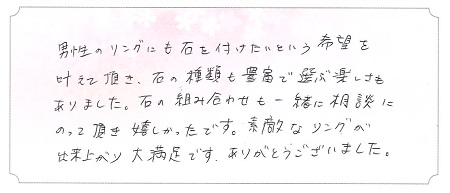 男性のリングにも石を付けたいという希望を
叶えて頂き、石の種類も豊富で選ぶ楽しさも
ありました。石の組み合わせも一緒に相談に
のって頂き嬉しかったです。素敵なリングが
出来上がり大満足です。ありがとうございました。